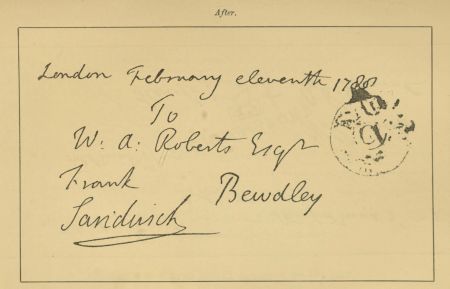 After.
London February eleventh 1788
To
W: A: Roberts Esqr
Frank Bewdley
Sandwich